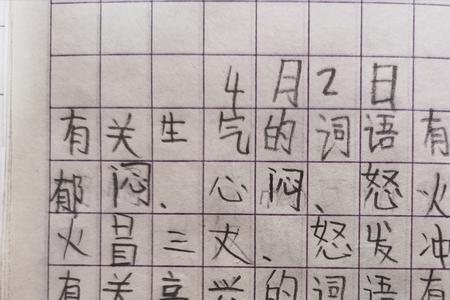 4月2日
有关生气的词语有
郁闷、心闷、怒火
火冒三丈、怒发冲
有关高兴的词语有